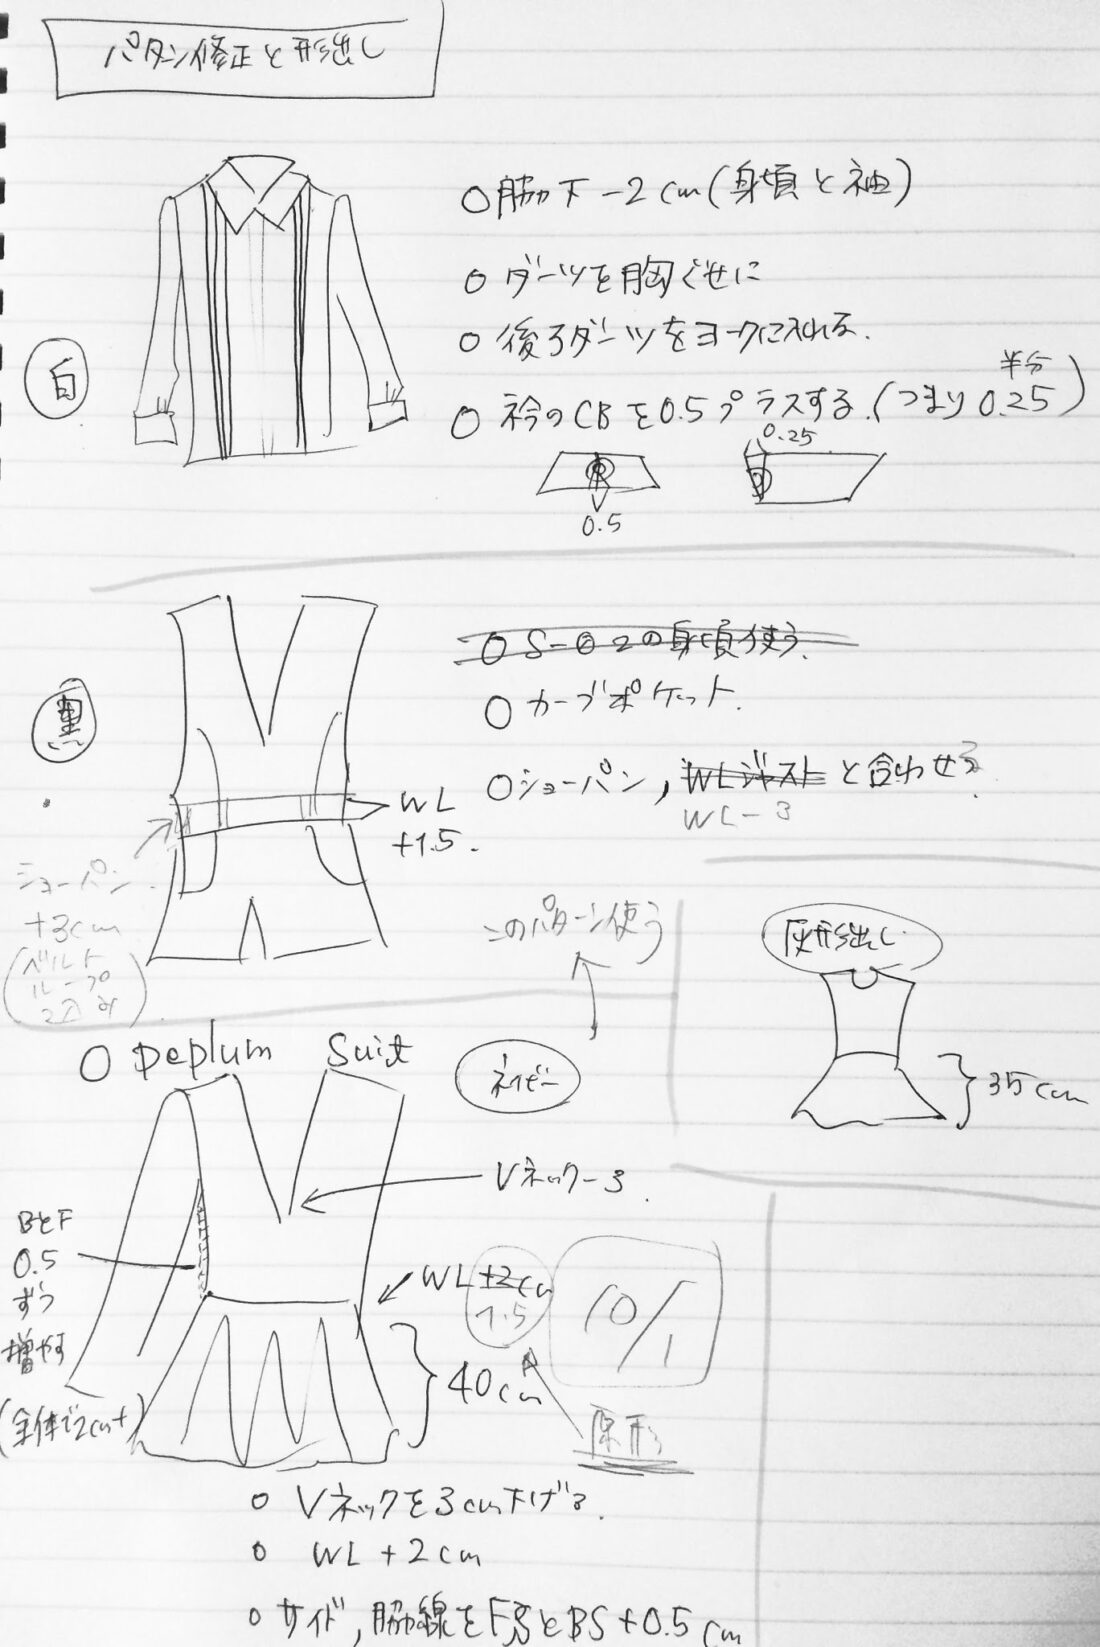 パタン修正と形出し
白
○脇下-2cm(身頃と袖)
○ダーツを胸ぐせに
○後ろダーツをヨークに入れる.
○衿のCBを0.5プラスする.(つまり0.25)
半分
0.25
0.5
黒
○S-02の身頃使う.
○カーブポケット.
○ショーパン,WLジャストと合わせる
WL-3
WL
+1.5.
ショーパン
+3cm
(ベルト
ループ
)
このパターン使う
灰形出し
35cm
○Peplum Suit
ネイビー
Vネック-3.
BとF
0.5
ずつ
増やす
(全体で2cm+)
WL+2cm
1.5
10/1
40cm
原形
○Vネックを3cm下げる.
○WL+2cm
○サイド,脇線をFSとBS+0.5cm